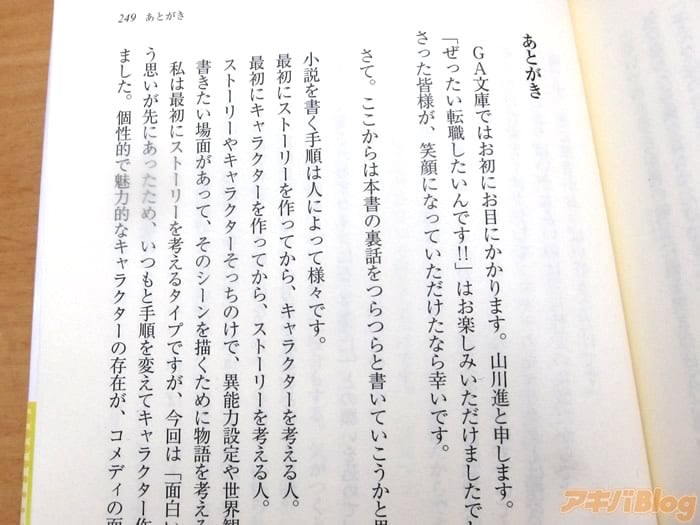 249 あとがき
あとがき
GA文庫ではお初にお目にかかります。山川進と申します。
「ぜったい転職したいんです!!」はお楽しみいただけましたで
さった皆様が、笑顔になっていただけたなら幸いです。
さて。ここからは本書の裏話をつらつらと書いていこうかと思
小説を書く手順は人によって様々です。
最初にストーリーを作ってから、キャラクターを考える人。
最初にキャラクターを作ってから、ストーリーを考える人。
ストーリーやキャラクターそっちのけで、異能力設定や世界観
書きたい場面があって、そのシーンを描くために物語を考える
私は最初にストーリーを考えるタイプですが、今回は「面白い
う思いが先にあったため、いつもと手順を変えてキャラクター作
ました。個性的で魅力的なキャラクターの存在が、コメディの面
アキバBlog